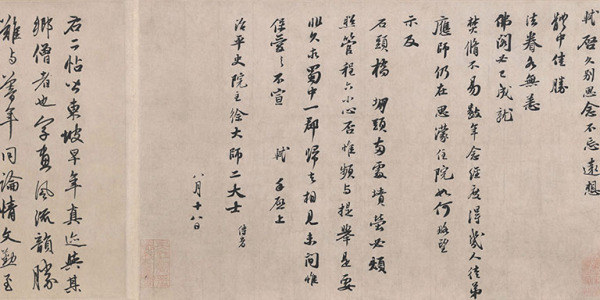 軾啓久別思念不忘遠想
體中佳勝
法眷各無恙
佛閣必已成就
焚脩不易數年念經度得幾人徒弟
應師仍在思濛住院如何略望
示及
石頭橋堋頭兩處墳塋必煩
照管程六小心否惟頻與提舉是要
非久求蜀中一郡歸去相見未間惟
保愛之不宣 軾手啓上
治平史院主徐大師二大士 侍者
八月十八日
右二帖皆東坡早年真迹與其
鄉僧者也字畫風流韻勝
難與暮年同論情文勤至